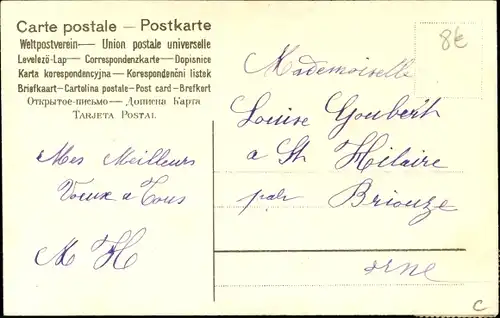 Carte postale — Postkarte
Weltpostverein — Union postale universelle
Levelező-Lap — Correspondenzkarte — Dopisnice
Karta korespondencyjna — Korespondenční lístek
Briefkaart — Cartolina postale — Post card — Brefkort
Открытое-письмо — Дописна Карта
Tarjeta Postal
8€
Mademoiselle
Louise Goubert
a St Hilaire
par Briouze
orne
Mes Meilleurs
Voeux a Tous
M H
C